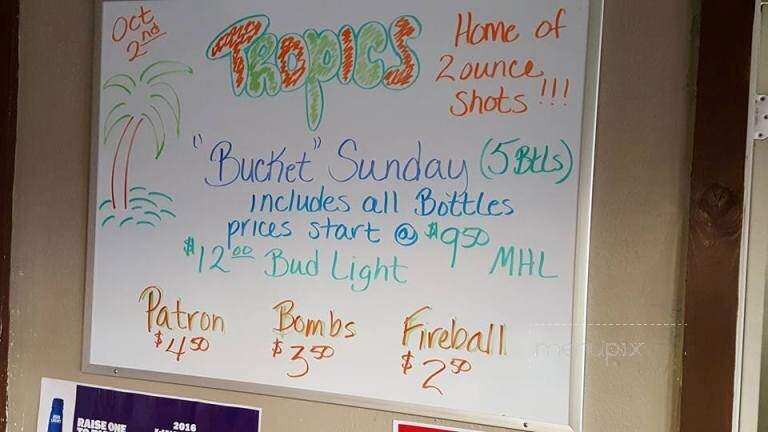 Oct
2nd
TROPICS
Home of
2 ounce
Shots !!!
"Bucket" Sunday (5 Btls)
includes all Bottles
prices start @ $9 50 MHL
$12 00 Bud Light
Patron
$4 50
Bombs
$3 50
Fireball
$2 50
menupix
RAISE ONE
2016